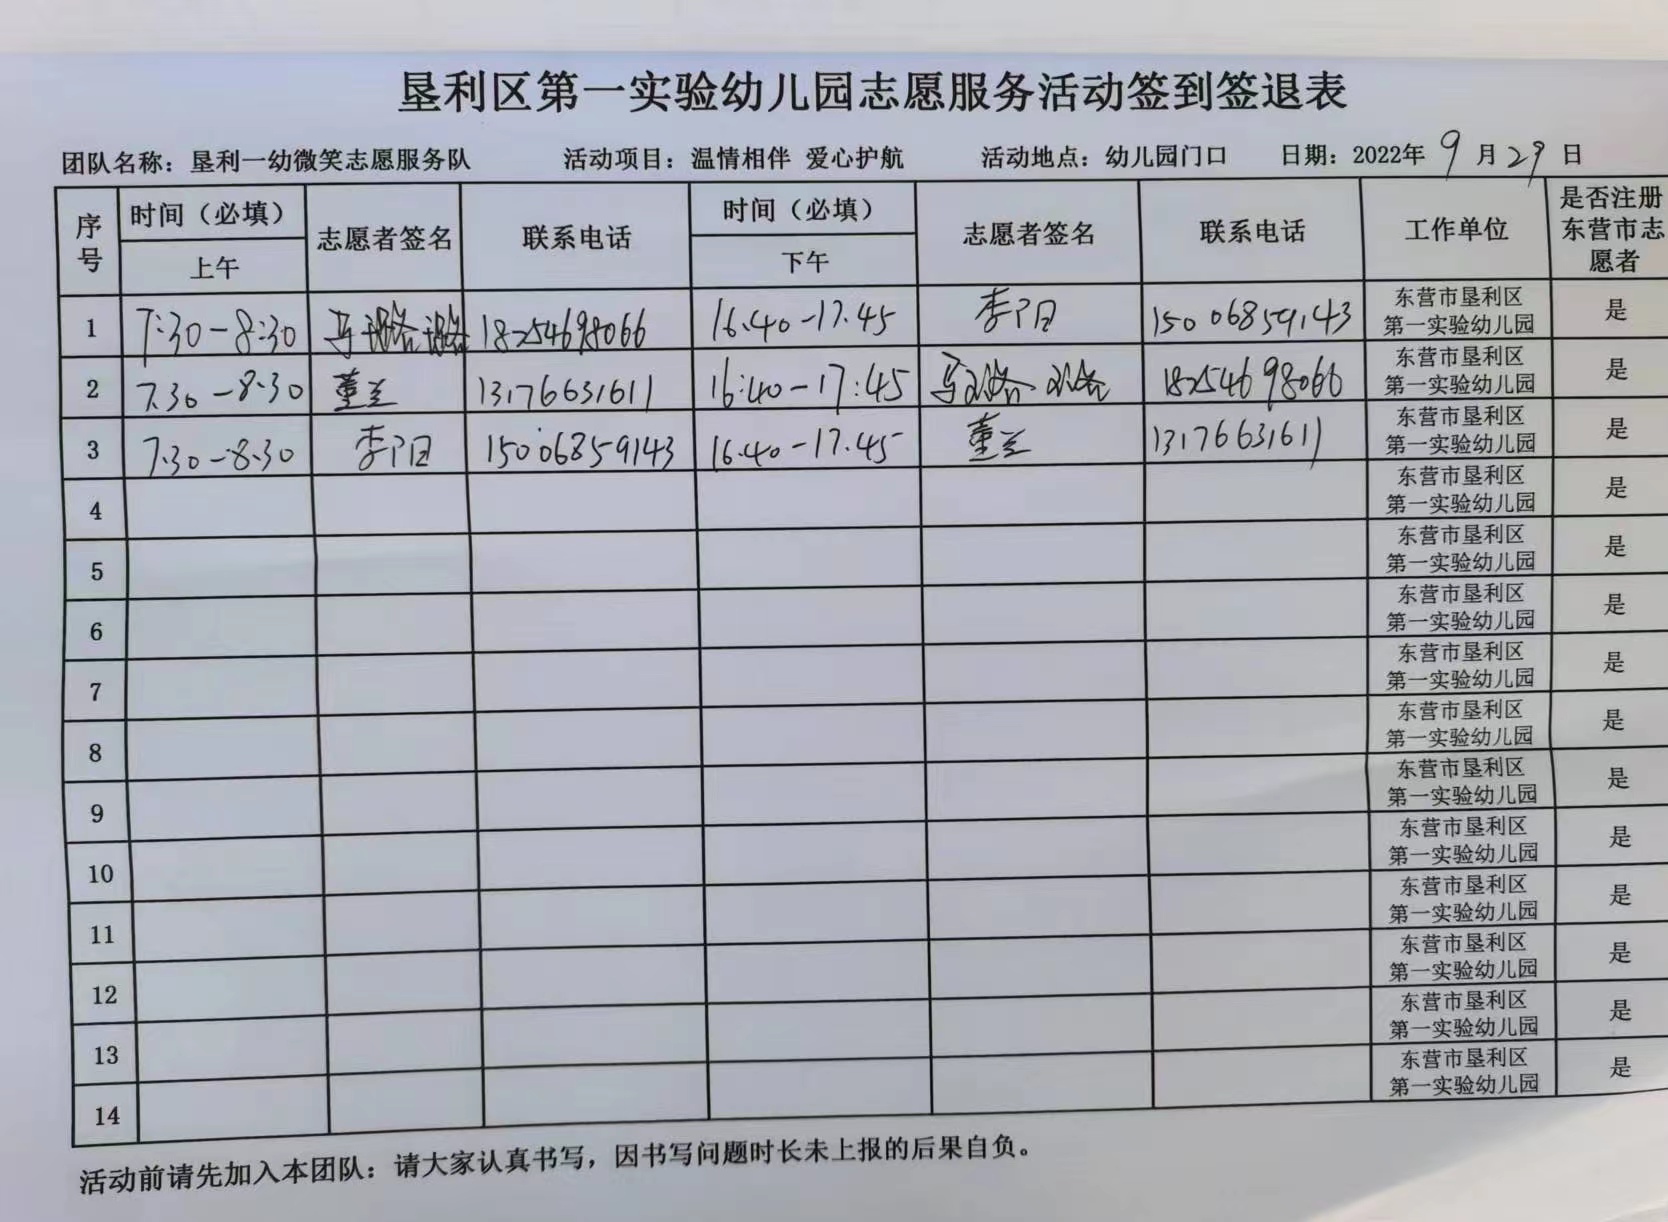 垦利区第一实验幼儿园志愿服务活动签到签退表
团队名称：垦利一幼微笑志愿服务队 活动项目：温情相伴 爱心护航 活动地点：幼儿园门口 日期：2022年 9 月 29 日
序号 时间（必填） 志愿者签名 联系电话 时间（必填） 志愿者签名 联系电话 工作单位 是否注册东营市志愿者
上午 下午
1 7:30-8:30 马 18254698066 16.40-17.45 李阳 15006859143 东营市垦利区第一实验幼儿园 是
2 7.30-8.30 董兰 13176631611 16:40-17:45 马 18254698066 东营市垦利区第一实验幼儿园 是
3 7.30-8.30 李阳 15006859143 16.40-17.45 董兰 13176631611 东营市垦利区第一实验幼儿园 是
4 东营市垦利区第一实验幼儿园 是
5 东营市垦利区第一实验幼儿园 是
6 东营市垦利区第一实验幼儿园 是
7 东营市垦利区第一实验幼儿园 是
8 东营市垦利区第一实验幼儿园 是
9 东营市垦利区第一实验幼儿园 是
10 东营市垦利区第一实验幼儿园 是
11 东营市垦利区第一实验幼儿园 是
12 东营市垦利区第一实验幼儿园 是
13 东营市垦利区第一实验幼儿园 是
14 东营市垦利区第一实验幼儿园 是
活动前请先加入本团队：请大家认真书写，因书写问题时长未上报的后果自负。